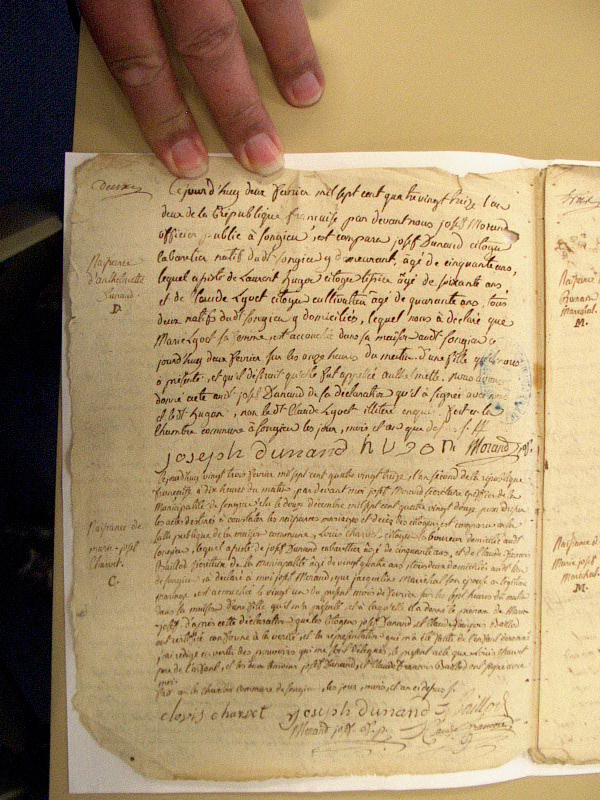 Deuxieme
Ce jourd'huy deux fevrier mil sept cent quatre vingt treize l'an
deux de la République française par devant nous joseph Morand
officier public à songieu est comparu joseph Dunand citoyen
natif dudt songieu y demeurant, âgé de cinquante ans,
lequel assisté de Laurent hugon citoyen âgé de soixante ans,
et de Claude Lyvet citoyen cultivateur âgé de quarante ans, tous
deux natifs dudt songieu y domiciliés, lequel nous à déclaré que
Marie Lyvet sa femme, est accouchée dans sa maison audt songieu ce
jourd'huy deux fevrier sur les onze heures du matin d'une fille qu'il nous
à présenté, et qu'il desiroit qu'elle fut appellée anthelmette. nous avons
donné acte audt joseph Dunand de sa déclaration qu'il à signée avec nous
et ledt hugon, non ledt Claude Lyvet illitéré enquis. fait en la
chambre commune à songieu les jour, mois et an que dessus
joseph dunand hugon Morand
Naissance
d'anthelmette
Dunand.
D.
Cejourd'huy vingt trois fevrier mil sept cent quatre vingt treize, l'an second de la république
françoise à dix heures du matin, par devant moi joseph Morand
Municipalité de songieu élu le douze décembre mil sept cent quatre vingt douze pour dresser
les actes destinés à constater les naissances mariages et décès des citoyens, est comparu en la
salle publique de la maison commune, clovis charvet, citoyen laboureur domicilié audt
songieu, lequel assisté de joseph Dunand âgé de cinquante ans, et de Claude françois
Baillod de la municipalité âgé de vingt quatre ans, tous deux domiciliés audt lieu
de songieu à déclaré à moi joseph Morand, que jacqueline Maréchal son épouse en légitime
mariage est accouchée le vingt un du présent mois de fevrier sur les sept heures du matin
dans sa maison d'une fille qu'il m'a présenté et à laquelle il a donné le prenom de Marie
joseph d'après cette déclaration que les citoyens joseph Dunand et Claude françois Baillod
ont certifié conforme à la verité, et la représentation qui m'a été faite de l'enfant dénommé
j'ai rédigé en vertu des pouvoirs qui me sont délégués, le présent acte que clovis charvet
pere de l'enfant, et les deux témoins joseph Dunand, et Claude françois Baillod ont signé avec
moi.
fait en la chambre commune de songieu, les jour, mois, et an ci dessus
clovis charvet joseph dunand Baillod
Morand Claude francois
Naissance de
marie joseph
Charvet.
C.
Trois
Naissance d
Maréchal.
M.
Naissance d
Marie joseph
Maréchal.
M.